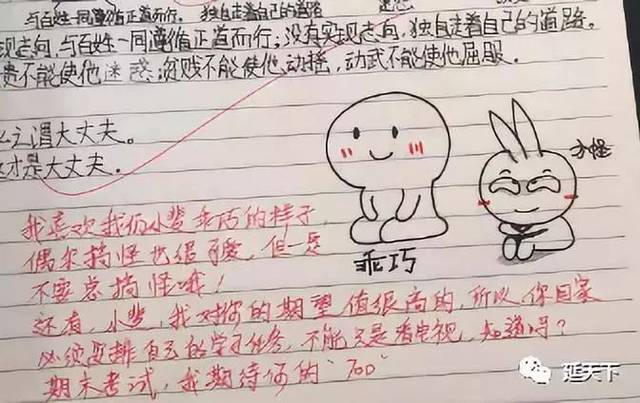 与百姓一同遵循正道而行。 独自走着自己的道路
现志向,与百姓一同遵循正道而行;没有实现志向,独自走着自己的道路。
贵不能使他迷惑;贫贱不能使他动摇,动武不能使他屈服.
之谓大丈夫。
才是大丈夫.
怪
乖巧
我喜欢我们小斐乖巧的样子,
偶尔搞怪也很可爱,但一定
不要总搞怪哦!
还有,小斐,我对你的期望值很高的,所以,你回家
必须安排自己的学习任务,不能只是看电视,知道吗?
期末考试,我期待你的"700"
延天下